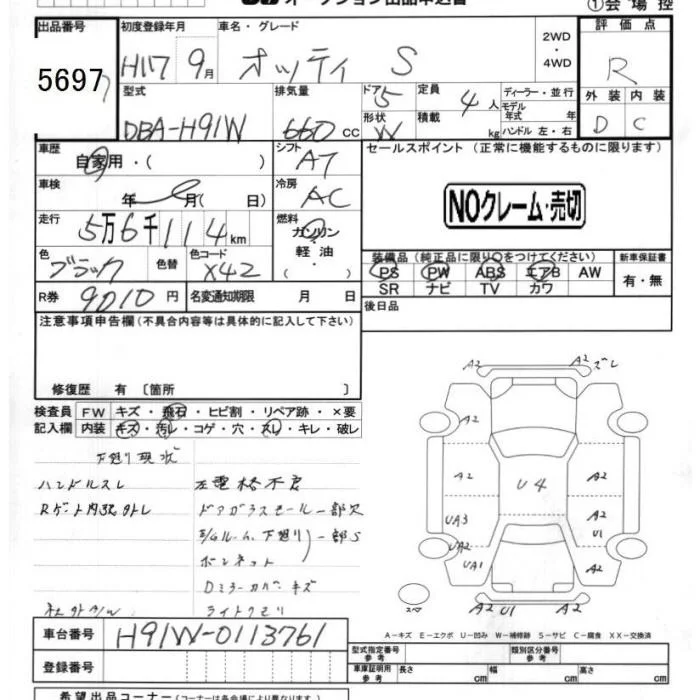 オークション出品申込書
①会場控
出品番号
5697
初度登録年月
車名・グレード
評価点
H17 9月
オッティ S
2WD
・
4WD
R
型式
排気量
ドア 5
定員
ディーラー・並行
外装 内装
DBA-H91W
660 cc
形状 W
積載
4人
kg
モデル
年式 年
ハンドル 左・右
D C
車歴
自家用・( )
シフト
AT
セールスポイント (正常に機能するものに限ります)
車検
年 月( 日)
冷房
AC
NOクレーム・売切
走行
5万6千114km
燃料
ガソリン
・
軽油
・( )
色
ブラック
色替
色コード
X42
装備品 (純正品に限り○をつけてください)
新車保証書
PS PW ABS エアB AW
SR ナビ TV カワ
有・無
R券 9010円
名変通知期限 月 日
後日品
注意事項申告欄 (不具合内容等は具体的に記入して下さい)
修復歴 有 〔箇所 〕
検査員
記入欄
FW キズ・飛石・ヒビ割・リペア跡・×要
内装 キズ・汚レ・コゲ・穴・スレ・キレ・破レ
下廻り現状
ハンドルスレ
左電格不良
ドアガラスモール一部欠
ボンネット
Dミラーカバーキズ
ライトクモリ
A2
A2 ズレ
A2
A2
A2
U4
A2
A2
UA3
U1
UA2
UA1
A2
A2 U1 A2
スペ
A-キズ E-エクボ U-凹み W-補修跡 S-サビ C-腐食 XX-交換済
車台番号
H91W-0113761
登録番号
型式指定番号
参考
類別区分番号
参考
車庫証明用
参考
長さ cm
幅 cm
高さ cm
希望出品コーナー (コーナーは各会場により異なります)